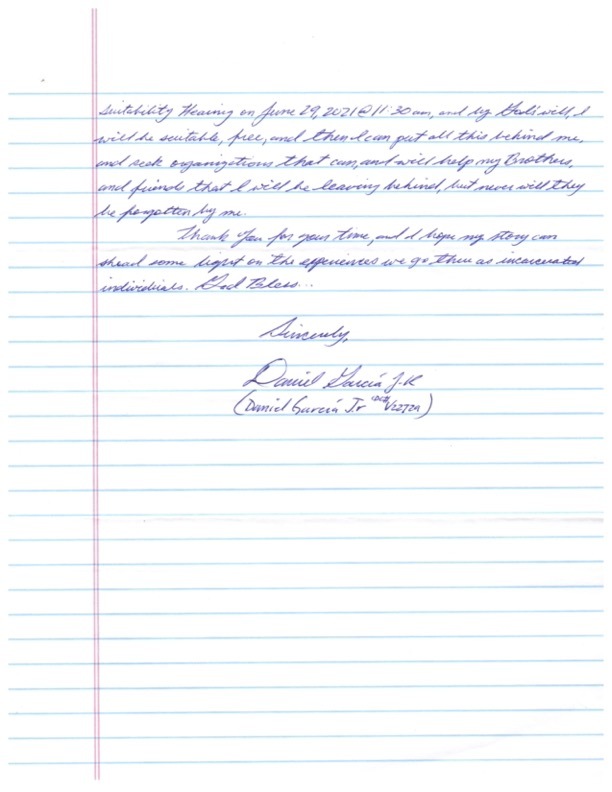 Suitability Hearing on June 29, 2021 @ 11:30 am, and by God's will, I
will be suitable, free, and then I can put all this behind me,
and seek organizations that can, and will help my Brothers,
and friends that I will be leaving behind, but never will they
be forgotten by me.
Thank You for your time, and I hope my story can
shead some light on the experiences we go thru as incarcerated
individuals. God Bless...
Sincerely,
Daniel Garcia J.R
(Daniel Garcia Jr CDC# V22729)